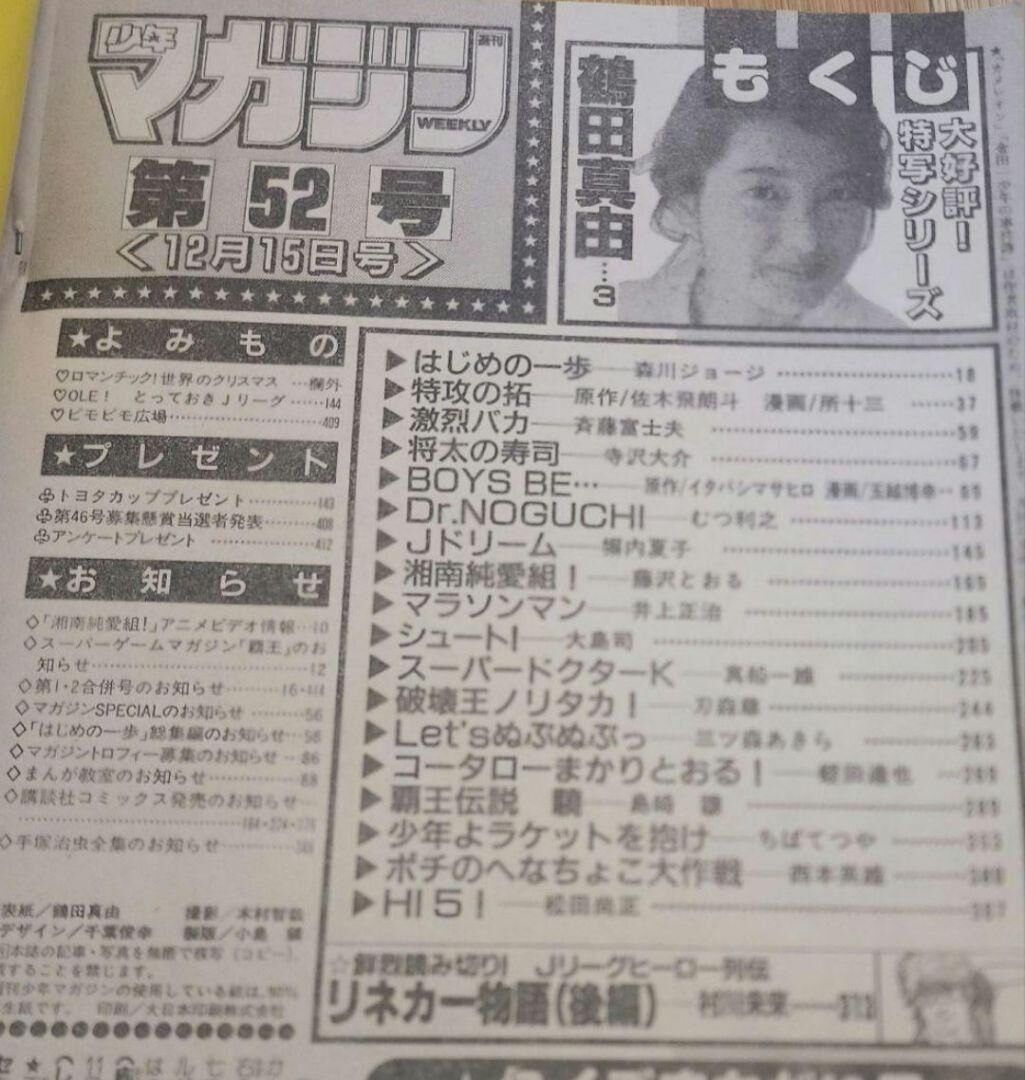 少年
週刊
マガジン
WEEKLY
第52号
<12月15日号>
もくじ
大好評!
特写シリーズ
鶴田真由…3
★よみもの
♡ロマンチック!世界のクリスマス …欄外
♡OLE! とっておきJリーグ……144
♡ピモピモ広場……409
★プレゼント
♧トヨタカッププレゼント……143
♧第46号募集懸賞当選者発表……408
♧アンケートプレゼント……412
★お知らせ
◇「湘南純愛組!」アニメビデオ情報…10
◇スーパーゲームマガジン「覇王」のお
知らせ……12
◇第1・2合併号のお知らせ……16・
◇マガジンSPECIALのお知らせ……56
◇「はじめの一歩」総集編のお知らせ…58
◇マガジントロフィー募集のお知らせ…86
◇まんが教室のお知らせ……88
◇講談社コミックス発売のお知らせ…
◇手塚治虫全集のお知らせ……
表紙/鶴田真由 撮影/木村智哉
デザイン/千葉俊幸 製版/小島
本誌の記事・写真を無断で複写(コピー)、
することを禁じます。
刊少年マガジンの使用している紙は、
生紙です。 印刷/大日本印刷株式会社
▶はじめの一歩 森川ジョージ……18
▶特攻の拓 原作/佐木飛朗斗 漫画/所十三……37
▶激烈バカ 斉藤富士夫……59
▶将太の寿司 寺沢大介……67
▶BOYS BE… 原作/イタバシマサヒロ 漫画/玉越博幸…89
▶Dr.NOGUCHI むつ利之……113
▶Jドリーム 塀内夏子……145
▶湘南純愛組! 藤沢とおる……165
▶マラソンマン 井上正治……185
▶シュート! 大島司……205
▶スーパードクターK 真船一雄……225
▶破壊王ノリタカ! 刃森尊……244
▶Let'sぬぷぬぷっ 三ツ森あきら……263
▶コータローまかりとおる! 蛭田達也……269
▶覇王伝説 驍 島崎譲……
▶少年よラケットを抱け ちばてつや……
▶ポチのへなちょこ大作戦 西本英雄……
▶HI 5! 松田尚正……
☆鮮烈読み切り! Jリーグヒーロー列伝
リネカー物語(後編) 村川未来……